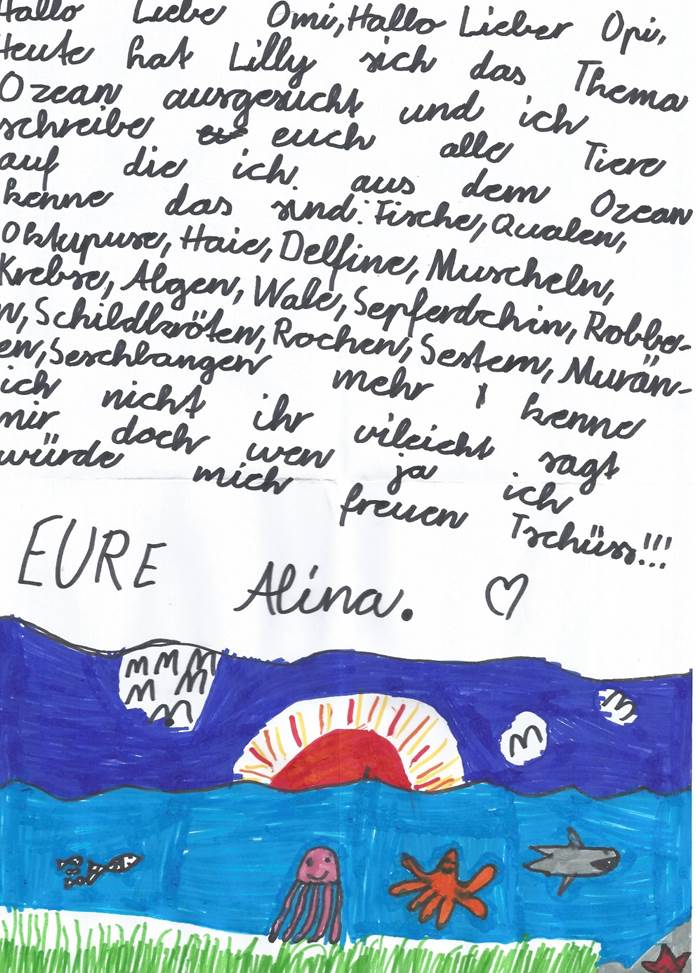 Hallo Liebe Omi, Hallo Lieber Opi,
Heute hat Lilly sich das Thema
Ozean ausgesucht und ich
schreibe euch alle Tiere
auf die ich aus dem Ozean
kenne das sind: Fische, Qualen,
Oktupuse, Haie, Delfine, Muscheln,
Krebse, Algen, Wale, Sepferdchin, Robbe-
n, Schildkröten, Rochen, Sestern, Murän-
en, Seschlangen mehr kenne
ich nicht ihr vileicht sagt
mir doch wen ja ich
würde mich freuen Tschüss!!!
EURE Alina.
M M M
M M
M
M
M